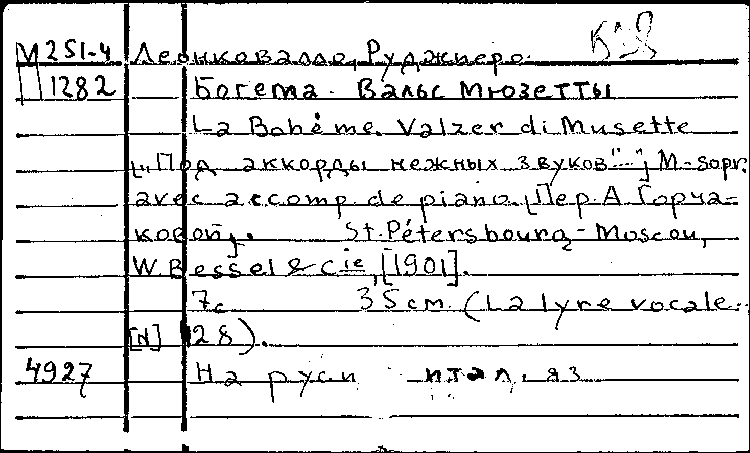 М251-4 Леонковалло, Руджиеро.
1282 Богема. Вальс Мюзетты
La Bohéme. Valzer di Musette
[„Под аккорды нежных звуков"...“] M-sopr.
avec accomp. de piano. [Пер. А. Горча-
ковой]. St. Pétersbourg - Moscou,
W. Bessel & Cie, [1901].
7с 35 cm. (La lyre vocale.
[N] 128).
4927 На русй итал. яз